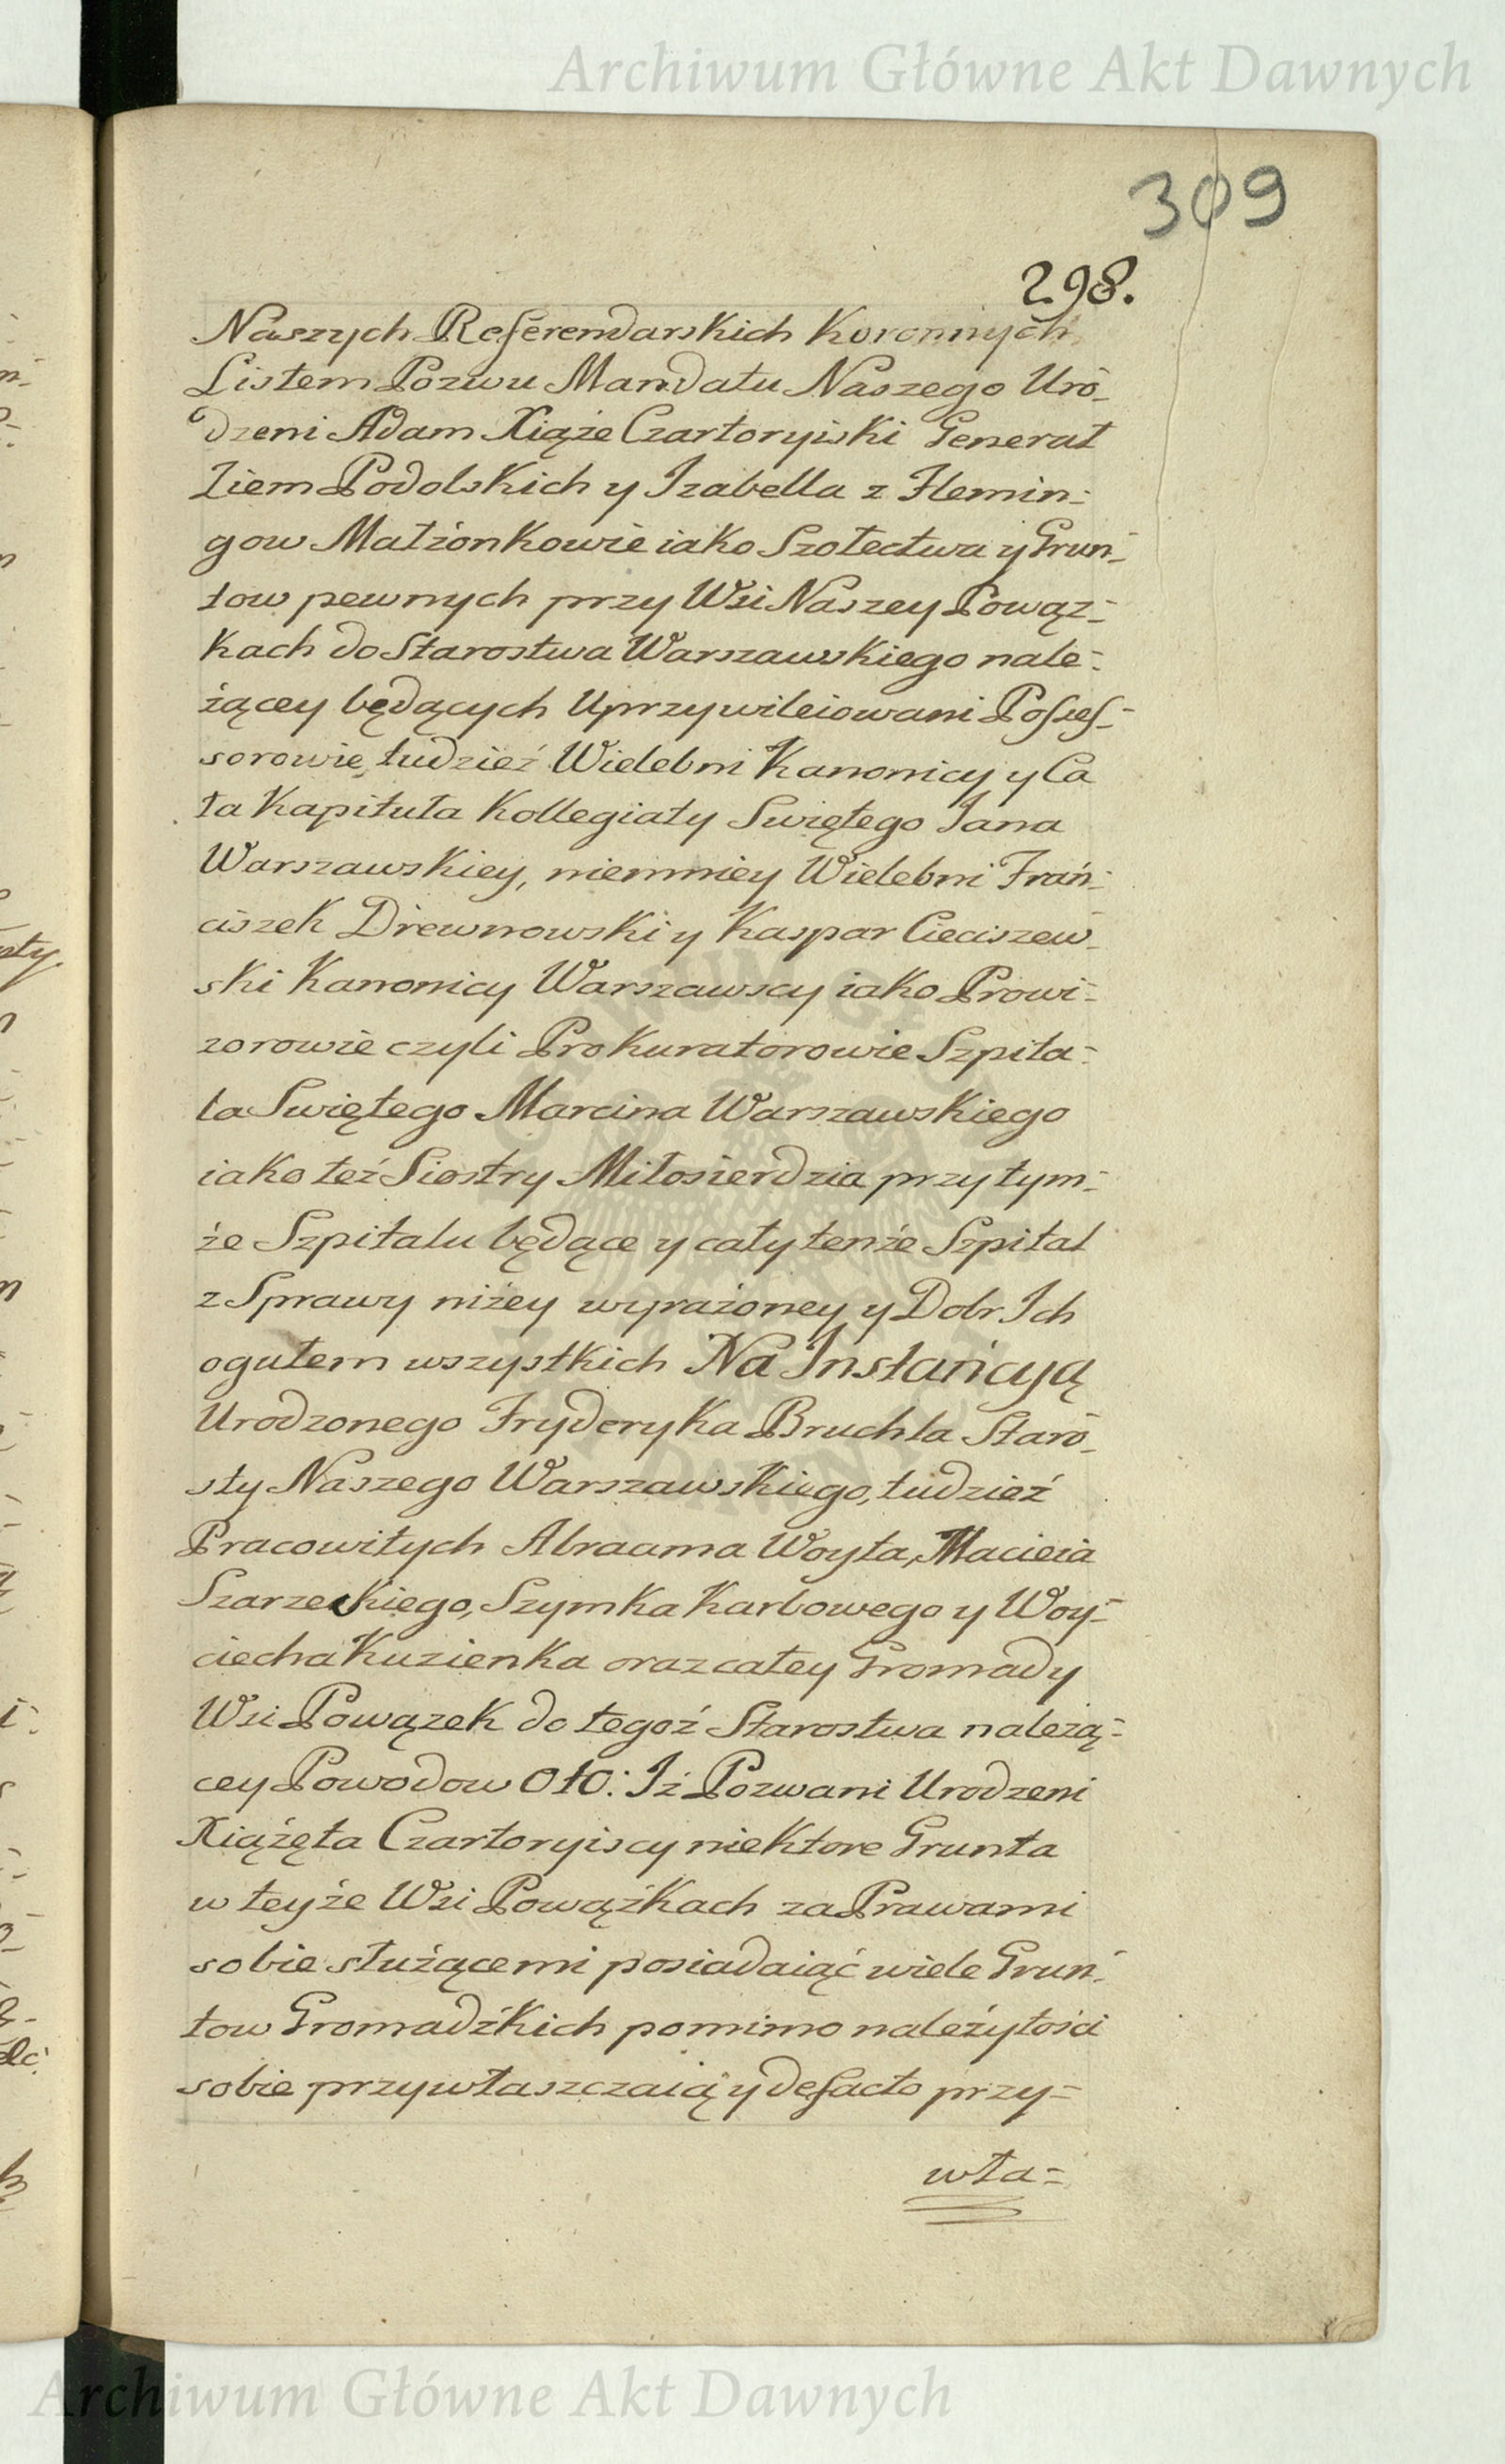 Archiwum Główne Akt Dawnych
309
298.
Naszych Referendarskich Koronnych
Listem Pozwu Mandatu Naszego Uro-
dzeni Adam Xiąże Czartoryiski Generał
Ziem Podolskich y Izabella z Flemin-
gow Małżonkowie iako Szołectwa y Grun-
tow pewnych przy Wsi Naszey Powąz-
kach do Starostwa Warszawskiego nale-
żącey będących Uprzywileiowani Posses-
sorowie, tudzież Wielebni Kanonicy y Ca
ła Kapituła Kollegiaty Swiętego Jana
Warszawskiey, niemniey Wielebni Fran-
ciszek Drewnowski y Kaspar Cieciszew-
ski Kanonicy Warszawscy iako Prowi-
zorowie czyli Prokuratorowie Szpita-
la Swiętego Marcina Warszawskiego
iako też Siostry Miłosierdzia przy tym-
że Szpitalu będące y cały tenże Szpital
z Sprawy niżey wyrażoney y Dobr Ich
ogułem wszystkich Na Instancyą
Urodzonego Fryderyka Bruchla Staro-
sty Naszego Warszawskiego, tudzież
Pracowitych Abraama Woyta, Macieia
Szarzeckiego, Szymka Karbowego y Woy-
ciecha Kuzienka oraz całey Gromady
Wsi Powązek do tegoż Starostwa należą-
cey Powodow Oto: Iż Pozwani Urodzeni
Xiążęta Czartoryiscy niektore Grunta
w teyże Wsi Powązkach za Prawami
sobie służącemi posiadaiąc wiele Grun-
tow Gromadzkich pomimo należytości
sobie przywłaszczaią y defacto przy-
wła-
Archiwum Główne Akt Dawnych